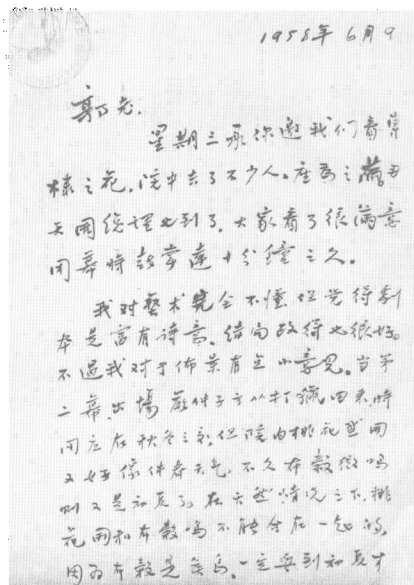 1958年6月9
郭老,
星期三承你邀我们看棠
棣之花,院中去了不少人。座为之满
天周总理也到了,大家看了很满意
闭幕时鼓掌达十分钟之久。
我对艺术完全不懂但觉得剧
本是富有诗意。结局改得也很好。
不过我对于佈景有 小意见。当第
二幕出場 严仲子方从打猎回来时
间应在秋冬之 但院内桃花盛開
又好像仲春天气,不久布穀 鸣
则又是初夏了在天然情况之下,桃
花開和布穀鸣不能合在一起的,
因为布穀是候鸟,一定要到初夏才